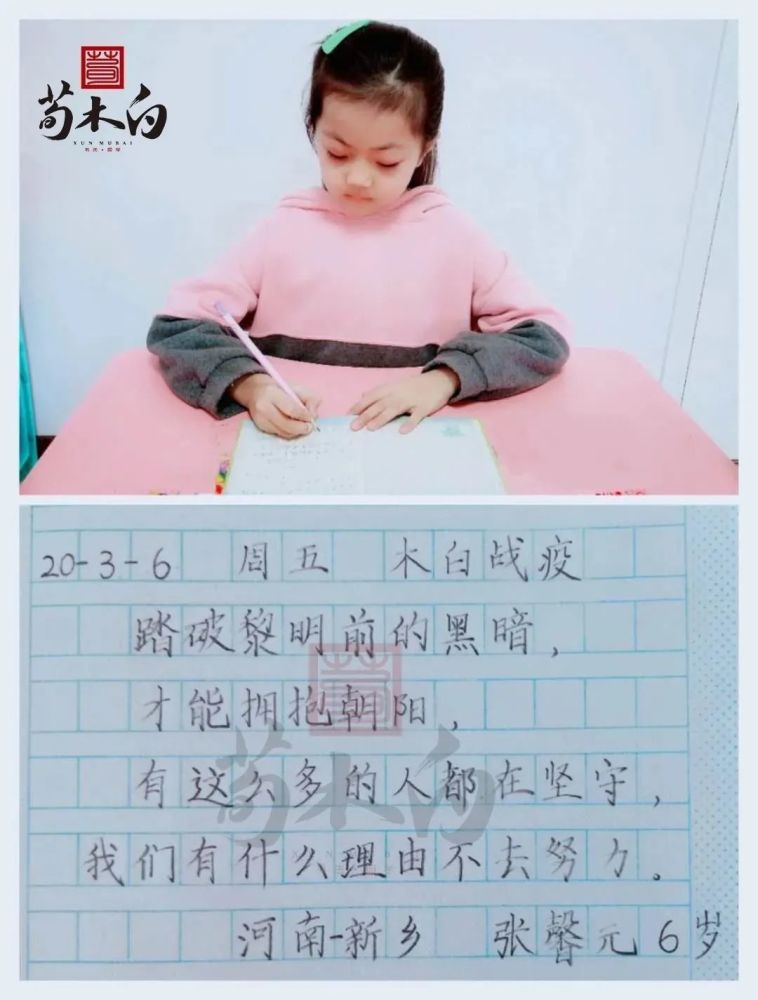 荀木白
XUN MUBAI
20-3-6 周五 木白战疫
踏破黎明前的黑暗,
才能拥抱朝阳,
有这么多的人都在坚守,
我们有什么理由不去努力。
河南-新乡 张馨元 6岁
荀木白